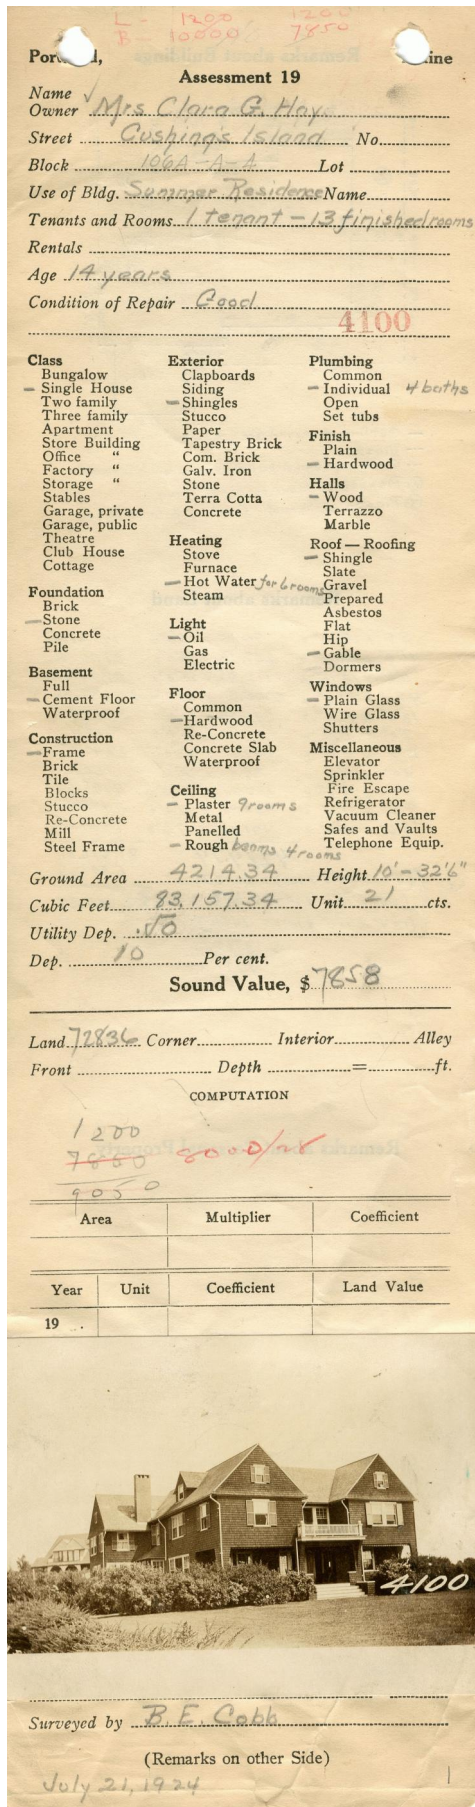 L - 1200 1200
B - 10000 7850
Assessment 19
Name
Owner Mrs Clara G. Hay
Street Cushing's Island No.
Block 106A-A-A Lot
Use of Bldg. Summer Residence Name
Tenants and Rooms 1 tenant - 13 finished rooms
Rentals
Age 14 years
Condition of Repair Good
4100
Class
Bungalow
- Single House
Two family
Three family
Apartment
Store Building
Office "
Factory "
Storage "
Stables
Garage, private
Garage, public
Theatre
Club House
Cottage
Foundation
Brick
- Stone
Concrete
Pile
Basement
Full
- Cement Floor
Waterproof
Construction
- Frame
Brick
Tile
Blocks
Stucco
Re-Concrete
Mill
Steel Frame
Exterior
Clapboards
Siding
- Shingles
Stucco
Paper
Tapestry Brick
Com. Brick
Galv. Iron
Stone
Terra Cotta
Concrete
Heating
Stove
Furnace
- Hot Water for 6 rooms
Steam
Light
- Oil
Gas
Electric
Floor
Common
- Hardwood
Re-Concrete
Concrete Slab
Waterproof
Ceiling
- Plaster 9 rooms
Metal
Panelled
- Rough beams 4 rooms
Plumbing
Common
- Individual 4 baths
Open
Set tubs
Finish
Plain
- Hardwood
Halls
- Wood
Terrazzo
Marble
Roof — Roofing
- Shingle
Slate
Gravel
Prepared
Asbestos
Flat
Hip
- Gable
Dormers
Windows
- Plain Glass
Wire Glass
Shutters
Miscellaneous
Elevator
Sprinkler
Fire Escape
Refrigerator
Vacuum Cleaner
Safes and Vaults
Telephone Equip.
Ground Area 4214.34 Height 10'-32'6"
Cubic Feet 83,157.34 Unit 21 cts.
Utility Dep. .50
Dep. 10 Per cent.
Sound Value, $ 7858
Land 72836 Corner Interior Alley
Front Depth = ft.
COMPUTATION
1200
7850 8000/28
9050
Area Multiplier Coefficient
Year Unit Coefficient Land Value
19
4100
Surveyed by B. E. Cobb
(Remarks on other Side)
July 21, 1924